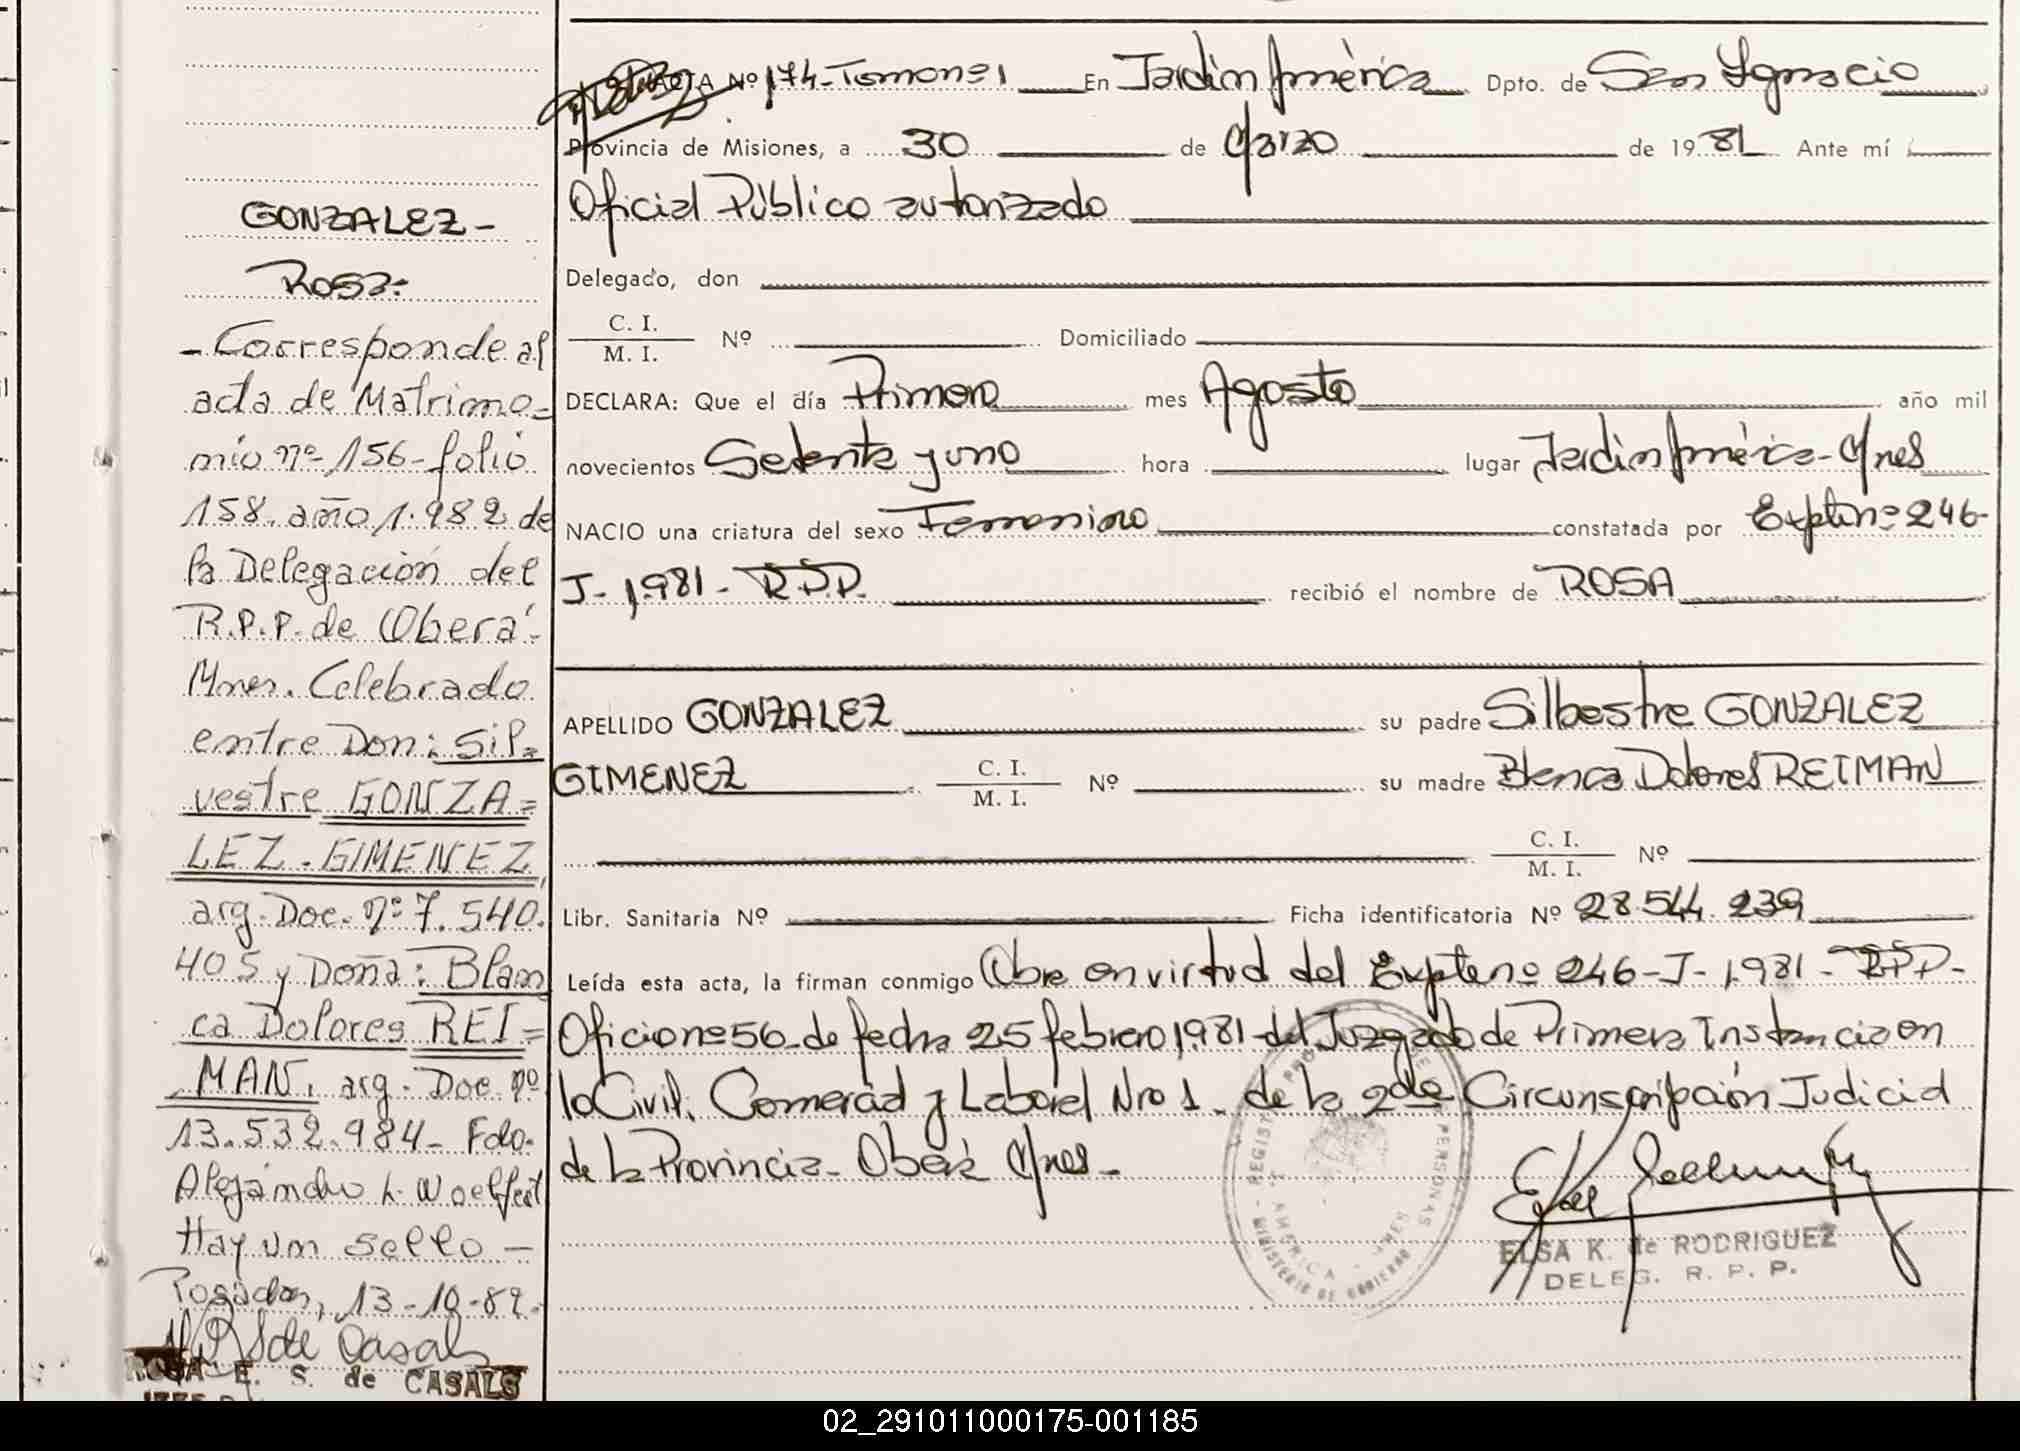 GONZALEZ-
ROSA:
- Corresponde al
acta de Matrimo=
mio nº 156-folio
158. año 1.982 de
la Delegación del
R.P.P. de Oberá-
Mnes. Celebrado
entre Don: Sil=
vestre GONZA=
LEZ-GIMENEZ,
arg. Doc. nº 7.540.
405 y Doña: Blan
ca Dolores REI=
MAN, arg. Doc. nº
13.532.984- Fdo.
Alejandro L. Woelfert
Hay un sello -
Posadas, 13-10-82.
RSde Casals
ROSA E. S. de CASALS
ACTA Nº 174-Tomo nº 1 En Jardín América Dpto. de San Ignacio
Provincia de Misiones, a 30 de Marzo de 1981 Ante mí
Oficial Público autorizado
Delegado, don
C. I.
M. I. Nº Domiciliado
DECLARA: Que el día Primero mes Agosto año mil
novecientos Setenta y uno hora lugar Jardín América-Mnes
NACIO una criatura del sexo Femenino constatada por Expte nº 246-
J-1.981- R.P.P. recibió el nombre de ROSA
APELLIDO GONZALEZ su padre Silbestre GONZALEZ
GIMENEZ C. I. M. I. Nº su madre Blanca Dolores REIMAN
C. I. M. I. Nº
Libr. Sanitaria Nº Ficha identificatoria Nº 28.544.239
Leída esta acta, la firman conmigo Obre en virtud del Expte nº 246-J-1.981- R.P.P-
Oficio nº 56-de fecha 25 febrero 1.981-del Juzgado de Primera Instancia en
lo Civil, Comercial y Laboral Nro 1- de la 2da Circunscripción Judicial
de la Provincia- Oberá Mnes-
ELSA K. de RODRIGUEZ
DELEG. R. P. P.
02_291011000175-001185